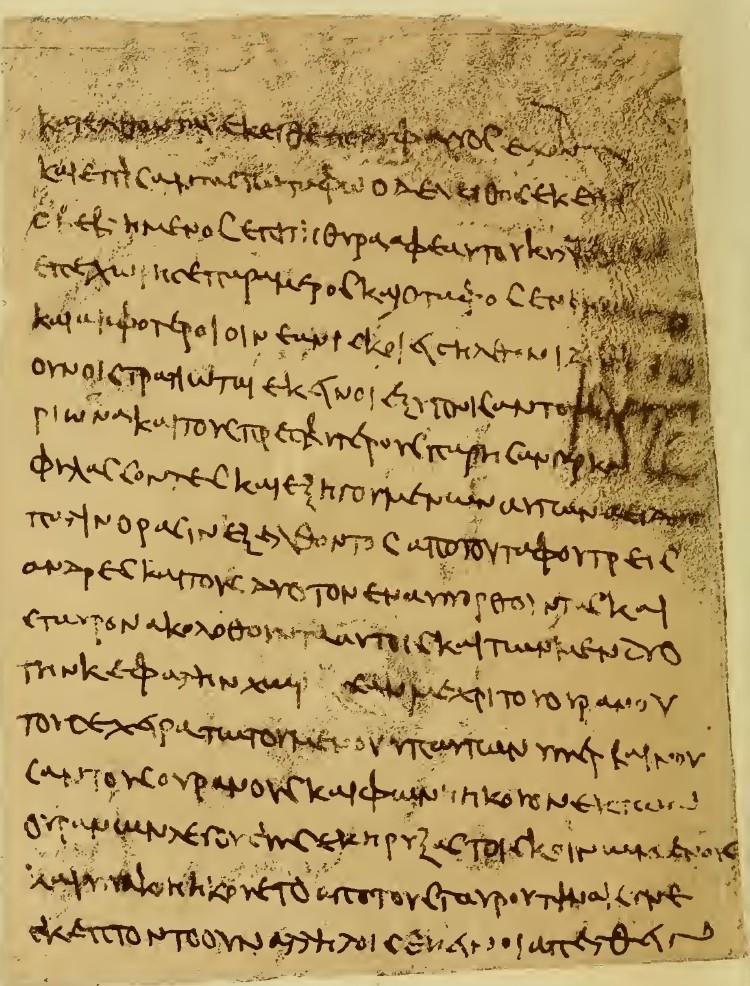 κατελθοντας εκειθε πολυ φεγγος εχοντας
και επισαντας τω ταφω ο δε λειθος εκει
ος ο βεβλημενος επι τη θυρα αφ εαυτου κυλι
επεχωρησε παρα μερος και ο ταφος ενοι
και αμφοτεροι οι νεανισκοι εισηλθον ιδ
ουν οι στρατιωται εκεινοι εξυπνισαν τον κεντυ
ριωνα και τους πρεσβυτερους παρησαν γαρ και
φυλασσοντες και εξηγουμενων αυτων α ειδον
παλιν ορασιν εξελθοντος απο του ταφου τρεις
ανδρες και τους δυο τον ενα υπορθουντας και
σταυρον ακολοθουντα αυτοις και των μεν δυο
την κεφαλην χωρουσαν μεχρι του ουρανου
του δε χειρατωτουμενου υπ αυτων υπερβαινου
σαν τους ουρανους και φωνης ηκουον εκ των
ουρανων λεγουσης εκηρυξας τοις κοινωμενοις
και υπακοη ηκουετο απο του σταυρου τιναι συνε
σκεπτοντο ουν αλληλοις εκεινοι απελθειν